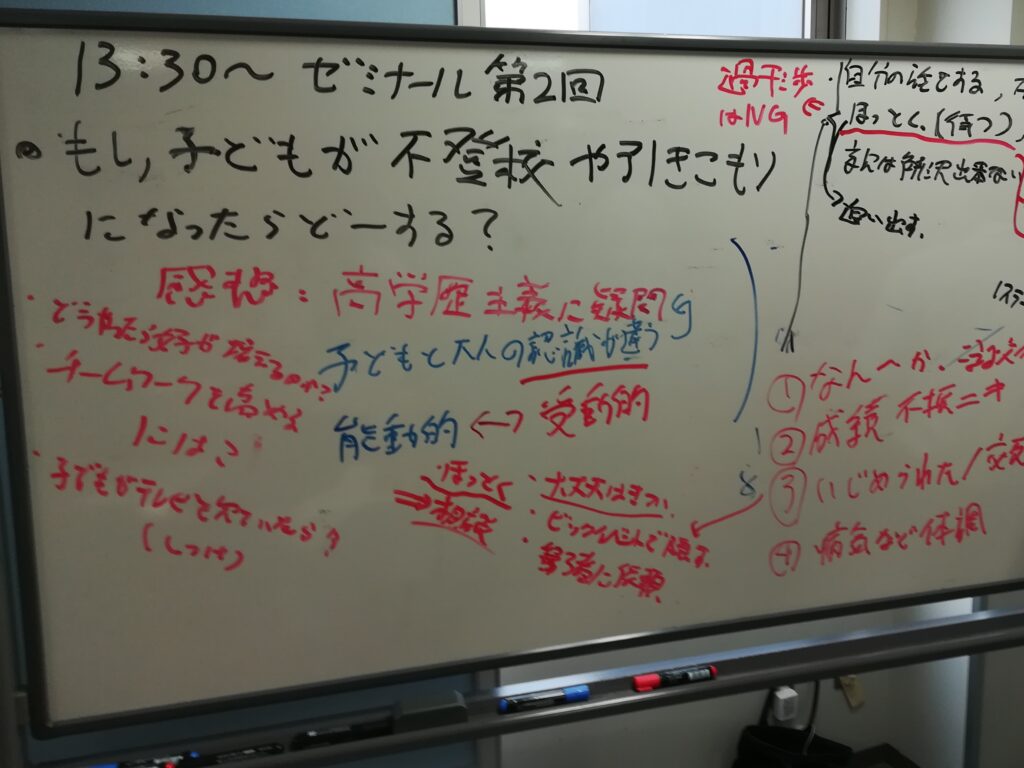 13:30〜 ゼミナール 第2回
• もし,子どもが 不登校 や引きこもり
になったらどーする?
過干渉
はNG
・自分の話をする,
ほっとく.(待つ)
追い出す.
感想:高学歴主義に疑問
子どもと大人の認識が違う
能動的 ↔ 受動的
・どうやったら
・チームワークを高める
には?
・子どもがテレビを
(しつけ)
ほっとく
⇒相談
・大丈夫はきつい
・
に依頼
① なんへか、
② 成績 不振ニキ
③ いじめられた/
④ 病気など体調